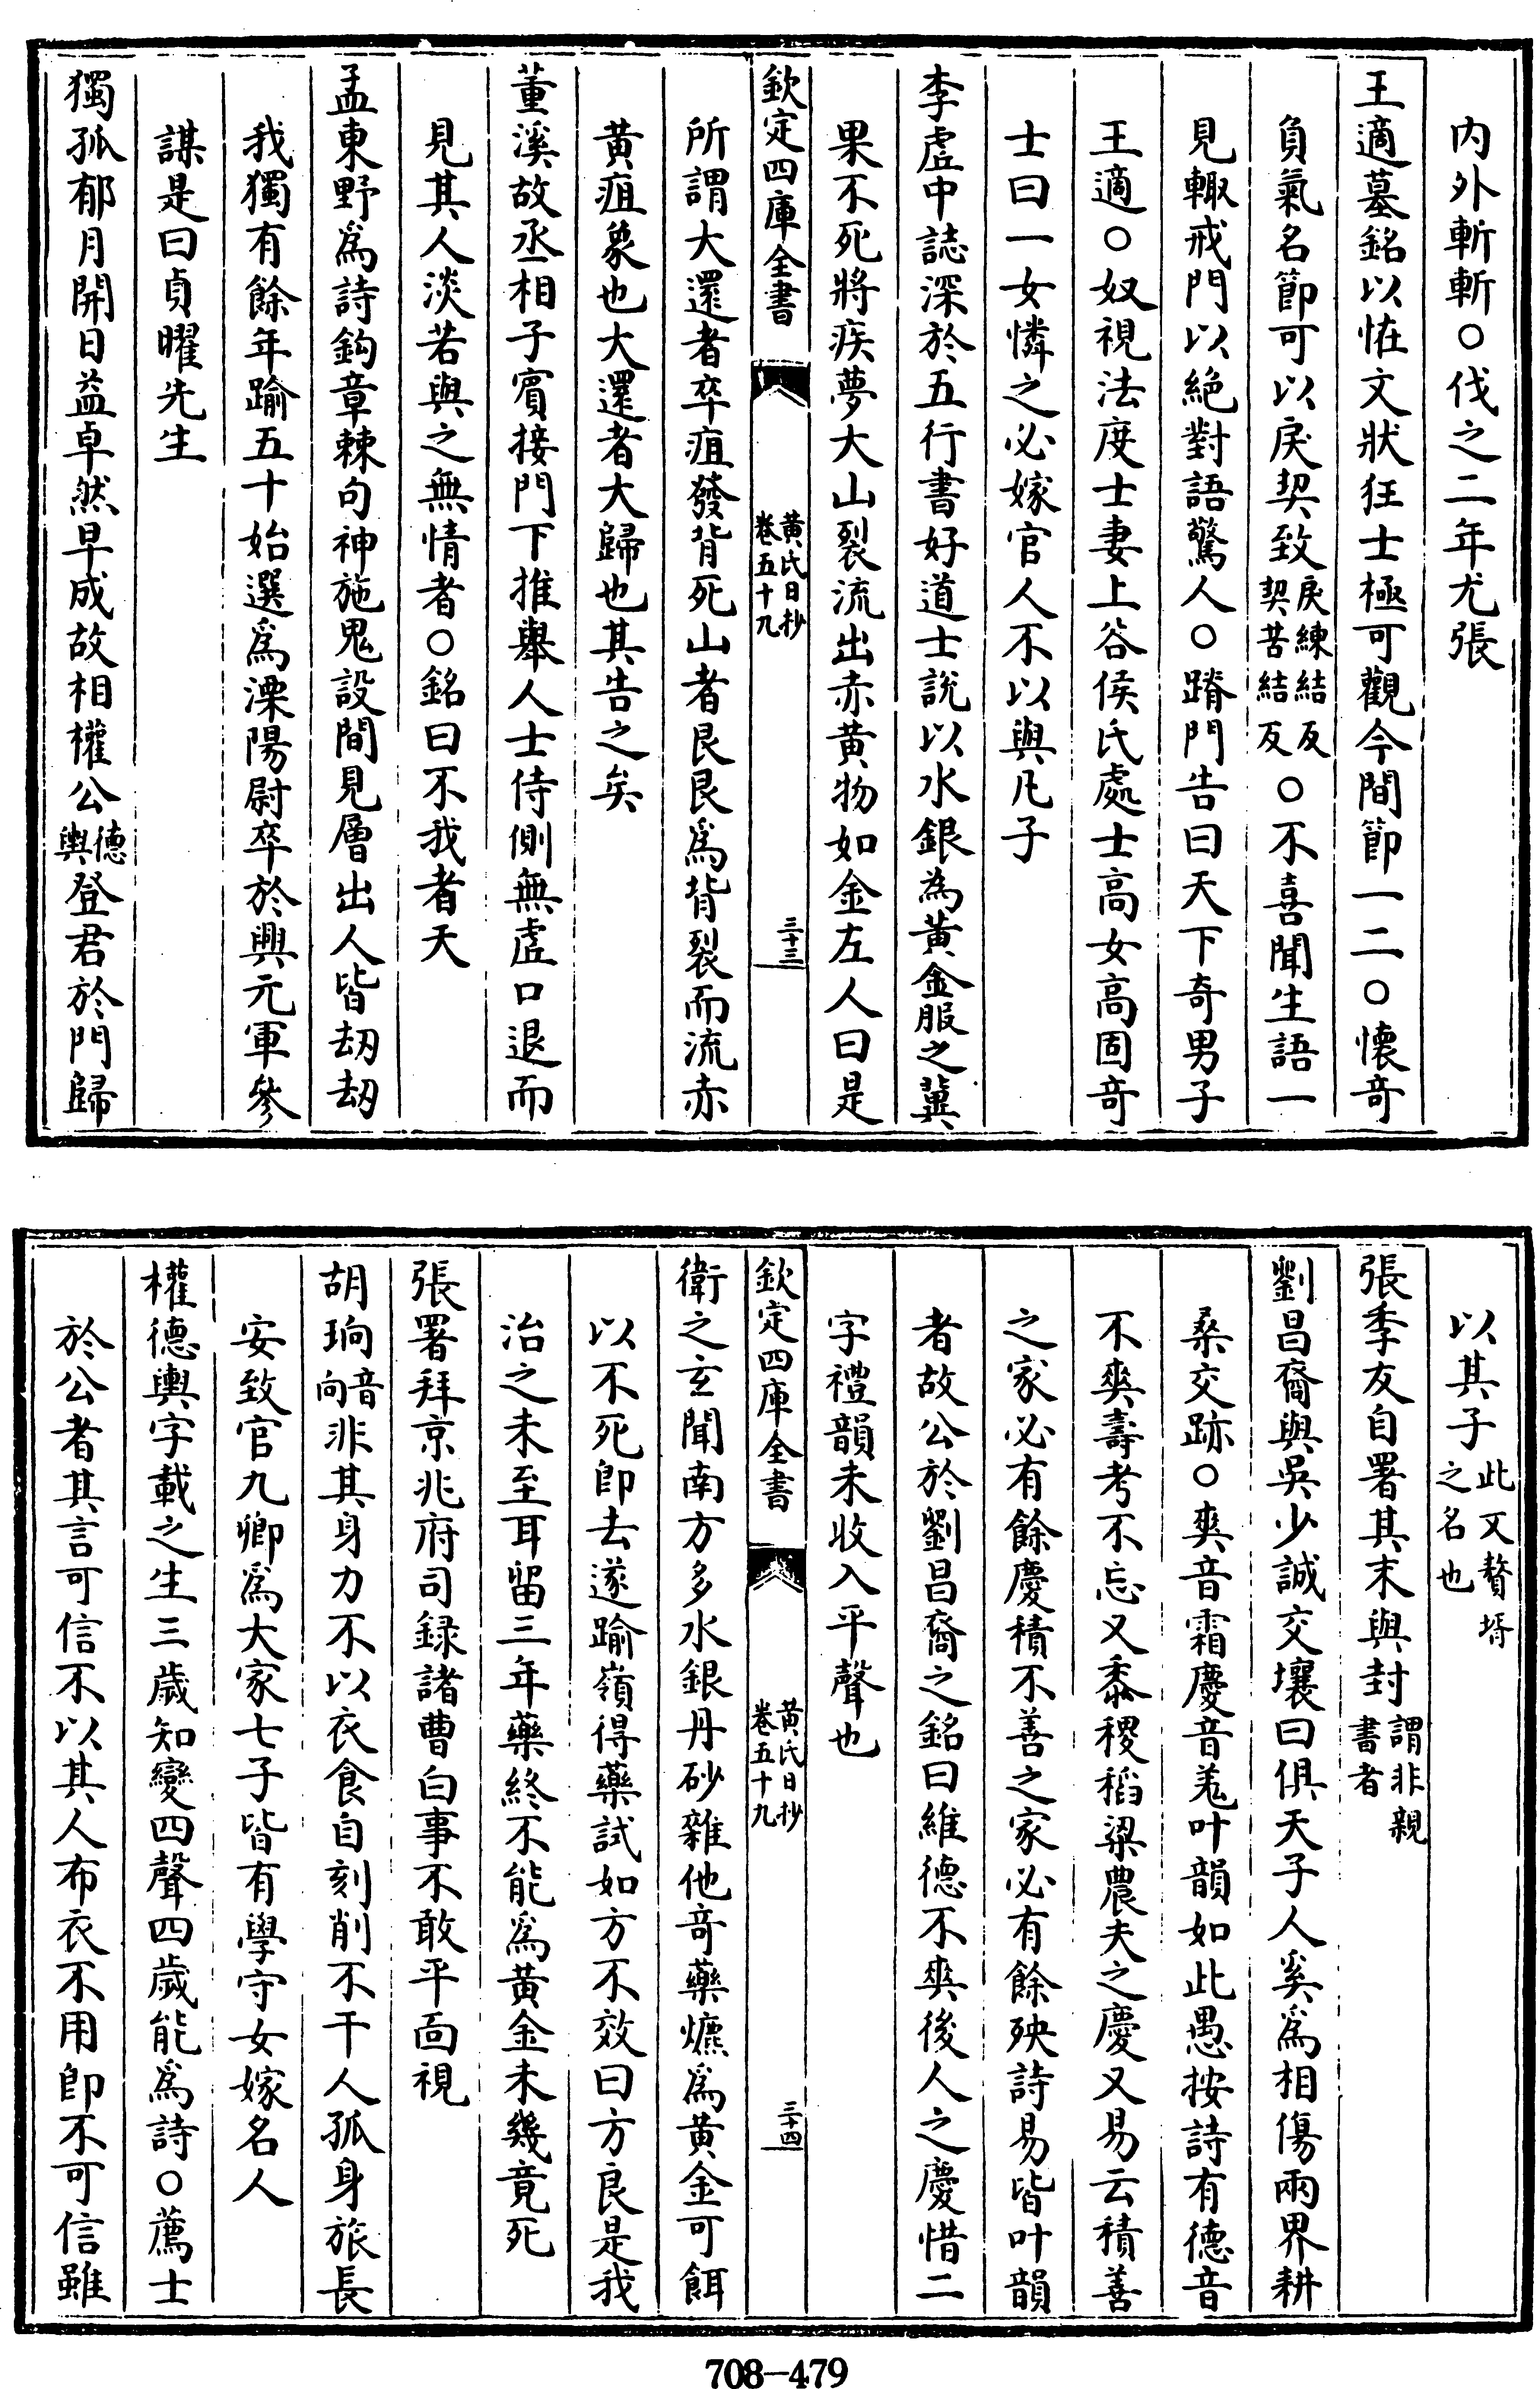 内外斬斬○伐之二年尤張
王適墓銘以恠文狀狂士極可觀今間節一二○懷奇
負氣名節可以戾契致戾練結反契苦結反○不喜聞生語一
見輙戒門以絶對語驚人○蹐門告曰天下奇男子
王適○奴視法度士妻上谷侯氏處士高女高固奇
士曰一女憐之必嫁官人不以與凡子
李虛中誌深於五行書好道士説以水銀為黄金服之冀
果不死將疾夢大山裂流出赤黄物如金左人曰是
欽定四庫全書 黄氏日抄卷五十九 三十三
所謂大還者卒疽發背死山者艮艮為背裂而流赤
黄疽象也大還者大歸也其告之矣
董溪故丞相子賓接門下推舉人士侍側無虛口退而
見其人淡若與之無情者○銘曰不我者天
孟東野爲詩鈎章棘句神施鬼設間見層出人皆刼刼
我獨有餘年踰五十始選爲溧陽尉卒於興元軍參
謀是曰貞曜先生
獨孤郁月開日益卓然早成故相權公德輿登君於門歸
以其子此又贅壻之名也
張季友自署其末與封謂非親書者
劉昌裔與吳少誠交壤曰俱天子人奚爲相傷兩界耕
桑交跡○爽音霜慶音羗叶韻如此愚按詩有德音
不爽壽考不忘又黍稷稻粱農夫之慶又易云積善
之家必有餘慶積不善之家必有餘殃詩易皆叶韻
者故公於劉昌裔之銘曰維德不爽後人之慶惜二
字禮韻未收入平聲也
欽定四庫全書 黄氏日抄卷五十九 三十四
衛之玄聞南方多水銀丹砂雜他奇藥爊爲黄金可餌
以不死卽去遂踰嶺得藥試如方不效曰方良是我
治之未至耳留三年藥終不能爲黄金未幾竟死
張署拜京兆府司録諸曹白事不敢平面視
胡珦音向非其身力不以衣食自刻削不干人孤身旅長
安致官九卿爲大家七子皆有學守女嫁名人
權德輿字載之生三歲知變四聲四歲能爲詩○薦士
於公者其言可信不以其人布衣不用卽不可信雖
708—479